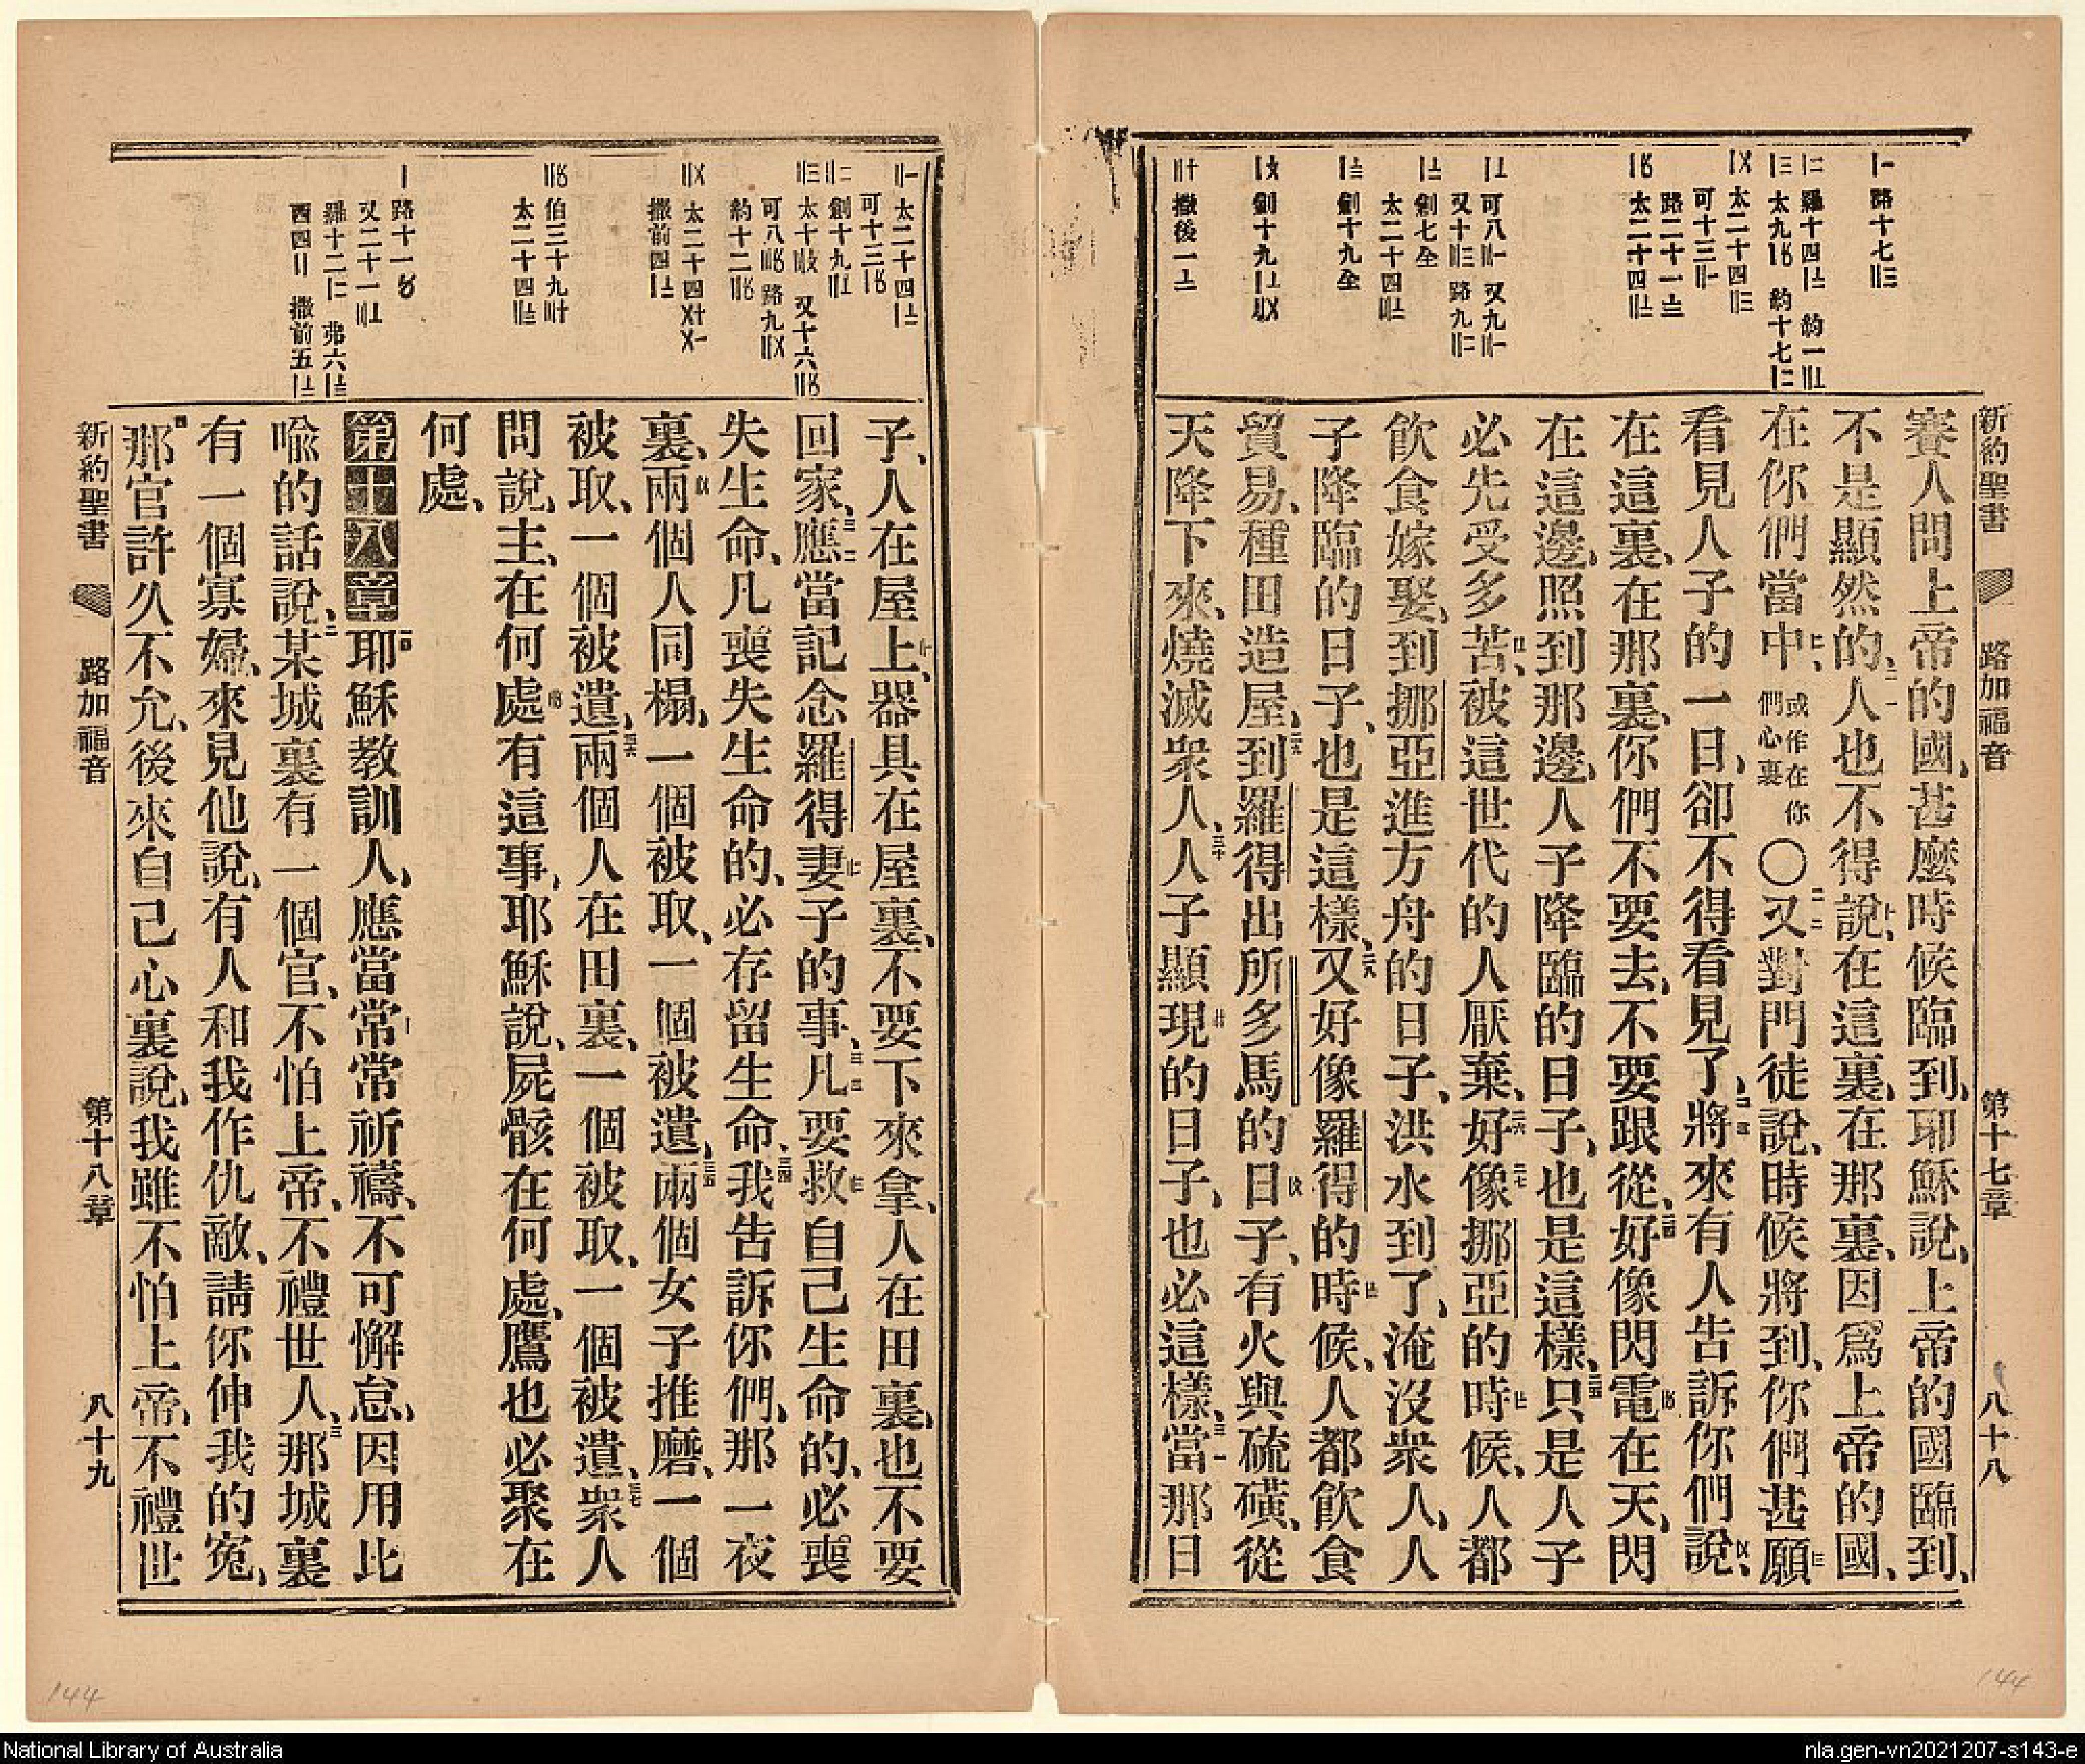 新約聖書 路加福音 第十七章 八十八
賽人問上帝的國、甚麼時候臨到、耶穌說、上帝的國臨到、
不是顯然的、二一人也不得說、在這裏、在那裏、因爲上帝的國、
在你們當中、或作在你們心裏〇二二又對門徒說、時候將到、你們甚願
看見人子的一日、卻不得看見了、二三將來有人告訴你們說、
在這裏、在那裏、你們不要去、不要跟從、二四好像閃電在天、閃
在這邊、照到那邊、人子降臨的日子、也是這樣、二五只是人子
必先受多苦、被這世代的人厭棄、二六好像挪亞的時候、人都
飲食嫁娶、到挪亞進方舟的日子、洪水到了、淹沒衆人、人
子降臨的日子、也是這樣、二八又好像羅得的時候、人都飲食
貿易、種田造屋、二九到羅得出所多馬的日子、有火與硫磺、從
天降下來、燒滅衆人、三十人子顯現的日子、也必這樣、三一當那日
子、人在屋上、器具在屋裏、不要下來拿、人在田裏、也不要
回家、三二應當記念羅得妻子的事、三三凡要救自己生命的、必喪
失生命、凡喪失生命的、必存留生命、三四我告訴你們、那一夜
裏、兩個人同榻、一個被取、一個被遺、三五兩個女子推磨、一個
被取、一個被遺、三六兩個人在田裏、一個被取、一個被遺、三七衆人
問說、主、在何處有這事、耶穌說、屍骸在何處、鷹也必聚在
何處、
第十八章 耶穌教訓人、應當常常祈禱、不可懈怠、因用比
喩的話說、二某城裏有一個官、不怕上帝、不禮世人、三那城裏
有一個寡婦、來見他說、有人和我作仇敵、請你伸我的寃、
四那官許久不允、後來自己心裏說、我雖不怕上帝、不禮世
新約聖書 路加福音 第十八章 八十九
144
144
National Library of Australia
nla.gen-vn2021207-s143-e